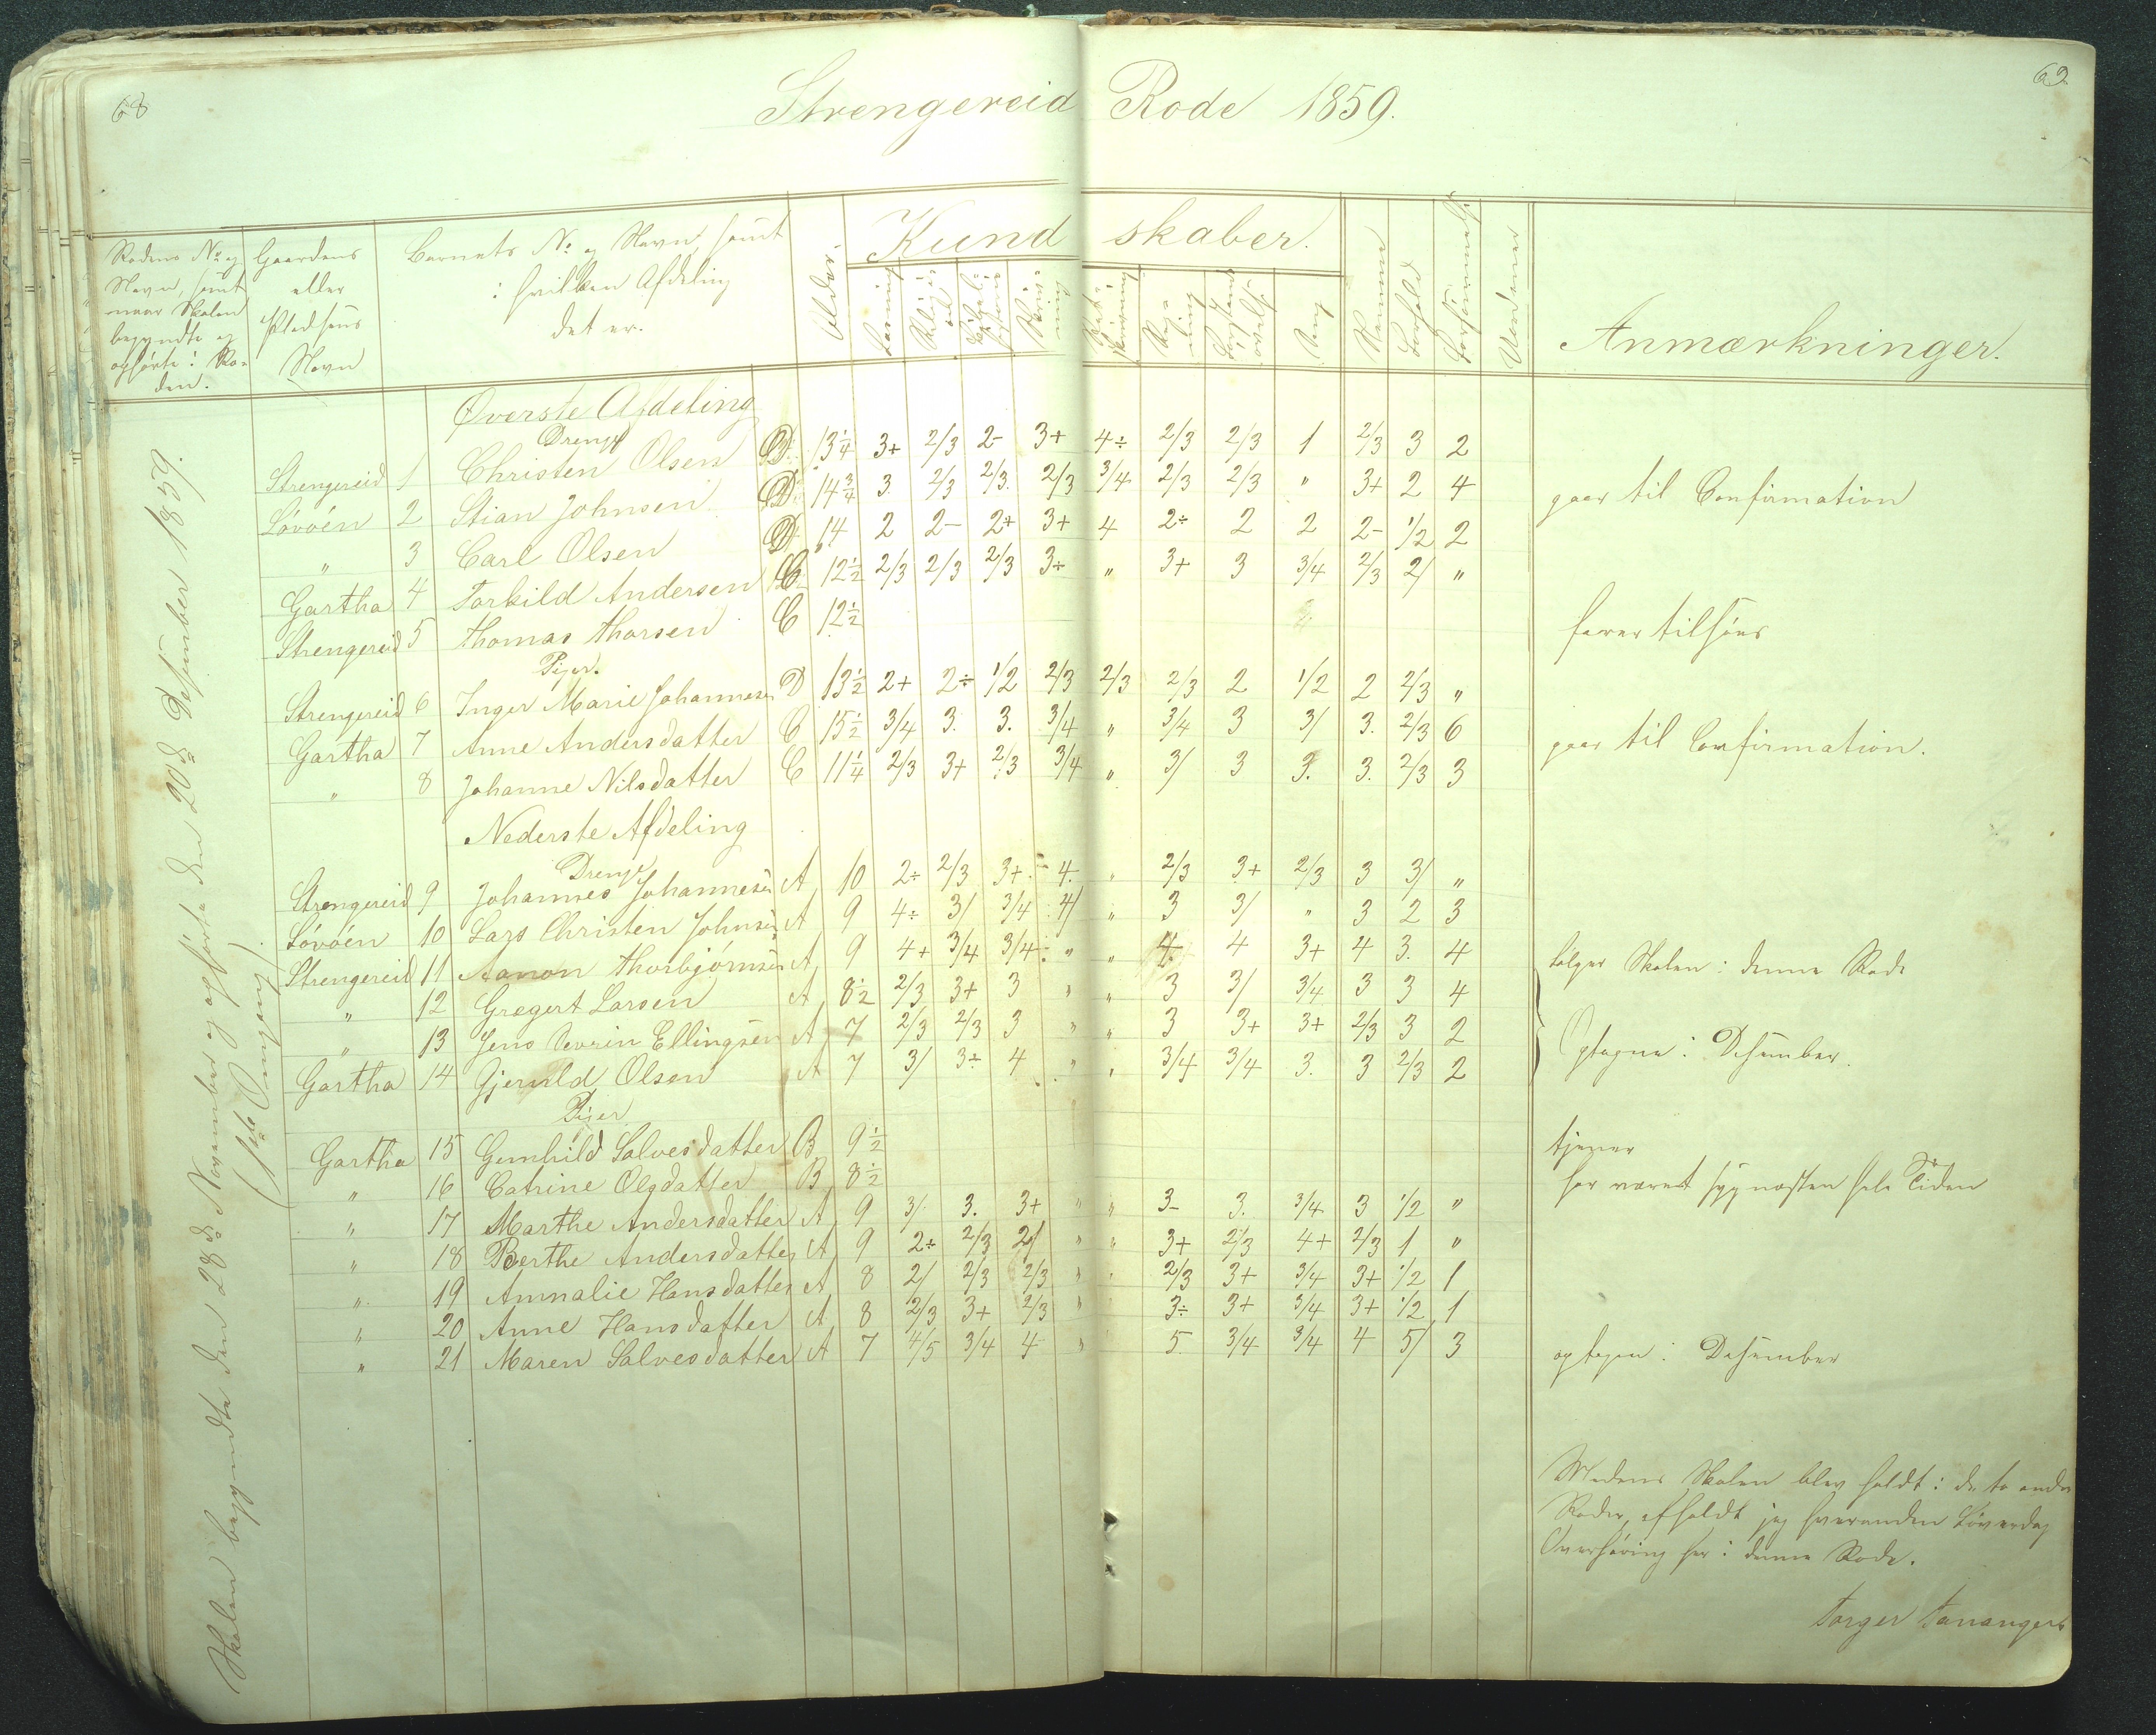 68
69.
Strengereid Rode 1859.
Rodens No og Navn, samt naar Skolen begyndte og ophørte i Roden.
Gaardens eller Pladsens Navn
Barnets No og Navn, samt i hvilken Afdeling det er.
Alder.
Kundskaber.
Læsning
Religion
Bibelhistorie
Skrivning
Retskrivning
Regning
Forstandsøvelse
Sang
Nemme
Forhold
Forsømmelse
Anmærkninger.
Skolen begyndte den 28de November og ophørte den 20de Desember 1859.
(1ste Omgang).
Øverste Afdeling
Drenge
Strengereid 1 Christen Olsen D 13 1/4 3+ 2/3 2- 3+ 4÷ 2/3 2/3 1 2/3 3 2
Lövöen 2 Stian Johnsen D 14 3/4 3. 2/3 2/3. 2/3 3/4 2/3 2/3 " 3+ 2 4 gaar til Confirmation
" 3 Carl Olsen D 14 2 2- 2+ 3+ 4 2÷ 2 2 2- 1/2 2
Gartha 4 Torkild Andersen C 12 1/2 2/3 2/3 2/3 3÷ " 3+ 3 3/4 2/3 2/ "
Strengereid 5 Thomas Thorsen C 12 1/2 farer tilsöes
Piger.
Strengereid 6 Inger Marie Johannesen D 13 1/2 2+ 2÷ 1/2 2/3 2/3 2/3 2 1/2 2 2/3 "
Gartha 7 Anne Andersdatter C 15 1/2 3/4 3. 3. 3/4 " 3/4 3 3/ 3. 2/3 6 gaar til Confirmation.
" 8 Johanne Nilsdatter C 11 1/4 2/3 3+ 2/3 3/4 " 3/ 3 3. 3. 2/3 3
Nederste Afdeling
Drenge
Strengereid 9 Johannes Johannesen A 10 2÷ 2/3 3+ 4. " 2/3 3+ 2/3 3 3/ "
Lövöen 10 Lars Christen Johnsen A 9 4÷ 3/ 3/4 4/ " 3 3/ " 3 2 3
Strengereid 11 Aanon Thorbjörnsen A 9 4+ 3/4 3/4 " " 4 4 3+ 4 3. 4 følger Skolen i denne Rode
" 12 Gregert Larsen A 8 1/2 2/3 3+ 3 " " 3 3/ 3/4 3 3 4
" 13 Jens Severin Ellingsen A 7 2/3 2/3 3 " " 3 3+ 3+ 2/3 3 2 Optagne i Desember.
Gartha 14 Gjeruld Olsen A 7 3/ 3÷ 4 " " 3/4 3/4 3. 3 2/3 2
Piger
Gartha 15 Gunhild Salvesdatter B 9 1/2 tjener
" 16 Catrine Olsdatter B 8 1/2 har været syg næsten hele Tiden
" 17 Marthe Andersdatter A 9 3/ 3. 3+ " " 3- 3. 3/4 3 1/2 "
" 18 Berthe Andersdatter A 9 2÷ 2/3 2/ " " 3+ 2/3 4+ 2/3 1 "
" 19 Amnalie Hansdatter A 8 2/ 2/3 2/3 " " 2/3 3+ 3/4 3+ 1/2 1
" 20 Anne Hansdatter A 8 2/3 3+ 2/3 " " 3÷ 3+ 3/4 3+ 1/2 1
" 21 Maren Salvesdatter A 7 4/5 3/4 4 " " 5. 3/4 3/4 4 5/ 3 optagen i Desember
Medens Skolen blev holdt i de to andre
Roder, afholdt jeg hveranden Löverdag
Overhøring her i denne Rode.
Torger Tananger